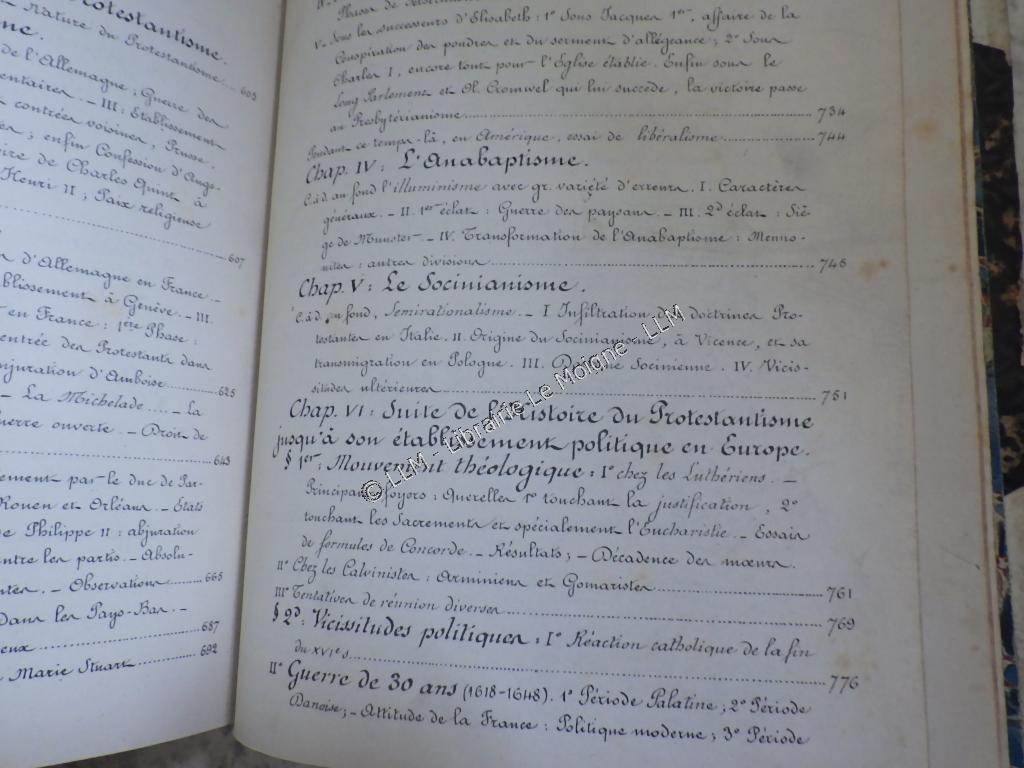 Protestantisme.
Nature du Protestantisme... 603
ne.
de l'Allemagne; Guerre des
entaires. – III: Etablissement
contrées voisines, Prusse.
enfin Confession d'Augs-
ire de Charles Quint à
Henri II; Paix religieuse
607
d'Allemagne en France. –
blissement à Genève. – III.
en France: 1ère Phase:
entrée des Protestants dans
njuration d'Amboise 625
– La Michelade.... – La
uerre ouverte. – Droit de
643
ement par le duc de Par-
Rouen et Orléans. – Etats
de Philippe II: abjuration
entre les partis. – Absolu-
ntes. – Observations 665
dans les Pays-Bas. –
eux 687
Marie Stuart 692
V. Sous les successeurs d'Elisabeth: 1° Sous Jacques 1er, affaire de la
Conspiration des poudres et du serment d'allégeance; 2° Sous
Charles I, encore tout pour l'Eglise établie. Enfin sous le
Long Parlement et Ol. Cromwel qui lui succède, la victoire passe
au Presbytérianisme 734
Pendant ce temps-là, en Amérique, essai de libéralisme 744
Chap. IV: L'Anabaptisme.
C.à.d. au fond l'illuminisme avec gr. variété d'erreurs. I. Caractères
généraux. – II. 1er éclat: Guerre des paysans. – III. 2d éclat: Siè-
ge de Munster. – IV. Transformation de l'Anabaptisme: Menno-
nites; autres divisions 745
Chap. V: Le Socinianisme.
C.à.d. au fond, Semirationalisme. – I Infiltration des doctrines Pro-
testantes en Italie. II. Origine du Socinianisme, à Vicence, et sa
transmigration en Pologne. III. Doctrine Socinienne. IV. Vicis-
situdes ultérieures 751
Chap. VI: Suite de l'Histoire du Protestantisme
jusqu'à son établissement politique en Europe.
§ 1er: Mouvement théologique: I° chez les Luthériens. –
Principaux foyers: Querelles 1° touchant la justification, 2°
touchant les Sacrements et spécialement l'Eucharistie. – Essais
de formules de Concorde. – Résultats; – Décadence des mœurs.
II° Chez les Calvinistes: Arminiens et Gomaristes 761
III° Tentatives de réunion diverses 769
§ 2d: Vicissitudes politiques: I° Réaction catholique de la fin
du XVIe s 776
II° Guerre de 30 ans (1618-1648). 1° Période Palatine; 2° Période
Danoise; – Attitude de la France: Politique moderne; 3° Période
© LLM - Librairie Le Moigne - LLM